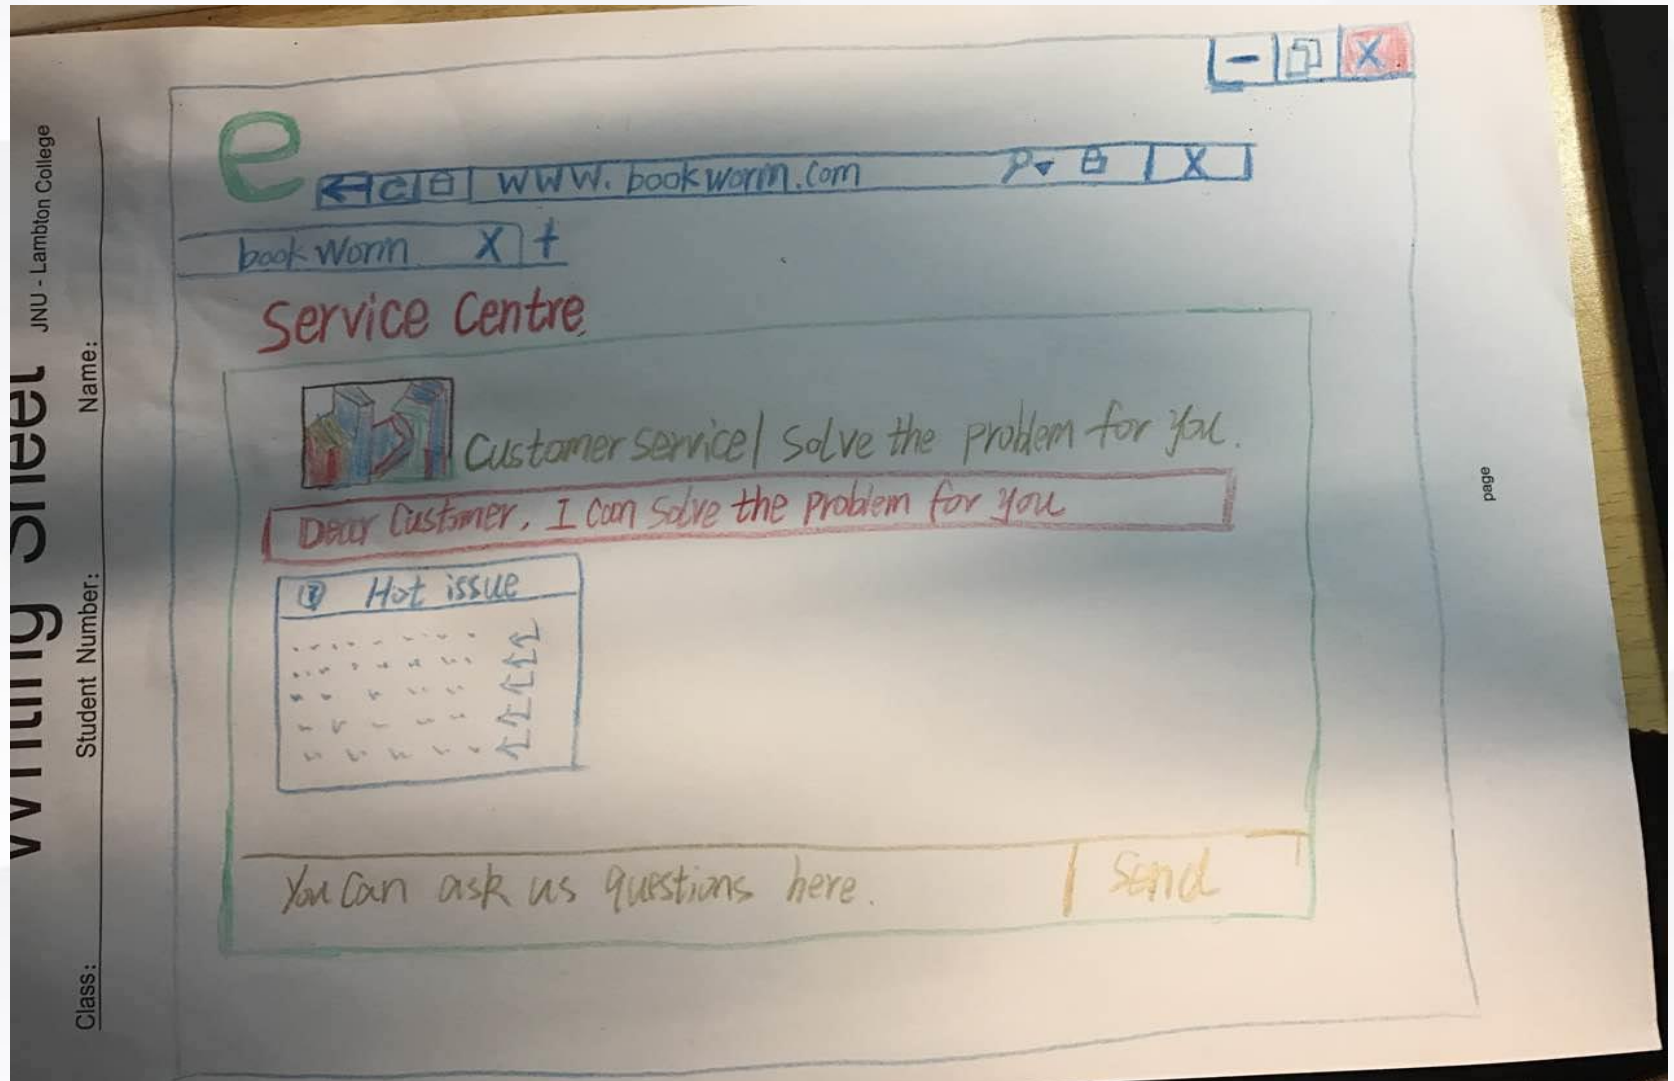 Writing Sheet
JNU - Lambton College
Class:
Student Number:
Name:
e
www.bookworm.com
X
X
bookworm X +
Service Centre
Customer service/ Solve the problem for you.
Dear Customer, I can solve the problem for you
Hot issue
You can ask us questions here.
Send
page